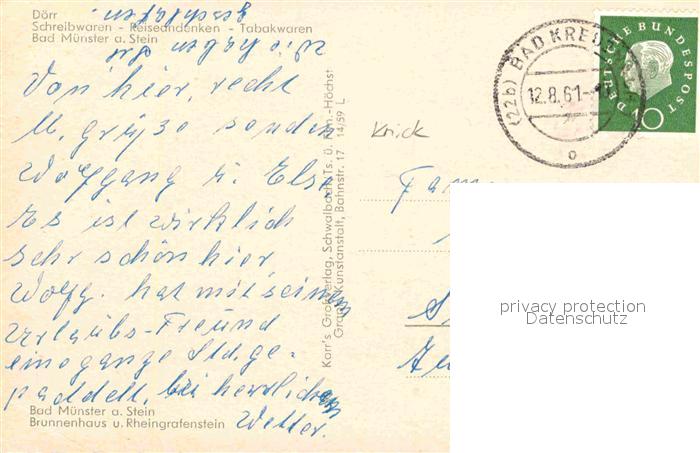 Dörr
Schreibwaren - Reiseandenken - Tabakwaren
Bad Münster a. Stein
Von hier, recht
lb. Grüße senden
Wolfgang u. Else
Es ist wirklich
sehr schön hier
Wolfg. hat mit seinem
Urlaubs-Freund
eine ganze Std. ge-
paddelt, bei herrlichem
Wetter.
Wir haben
geschlafen.
Bad Münster a. Stein
Brunnenhaus u. Rheingrafenstein
Korr's Großverlag, Schwalbach/Ts. ü. Ffm.-Höchst
Graph. Kunstanstalt, Bahnstr. 17 14/59 L
Knick
(22b) BAD KREUZNACH
12.8.61
DEUTSCHE BUNDESPOST
10
Fam
privacy protection
Datenschutz